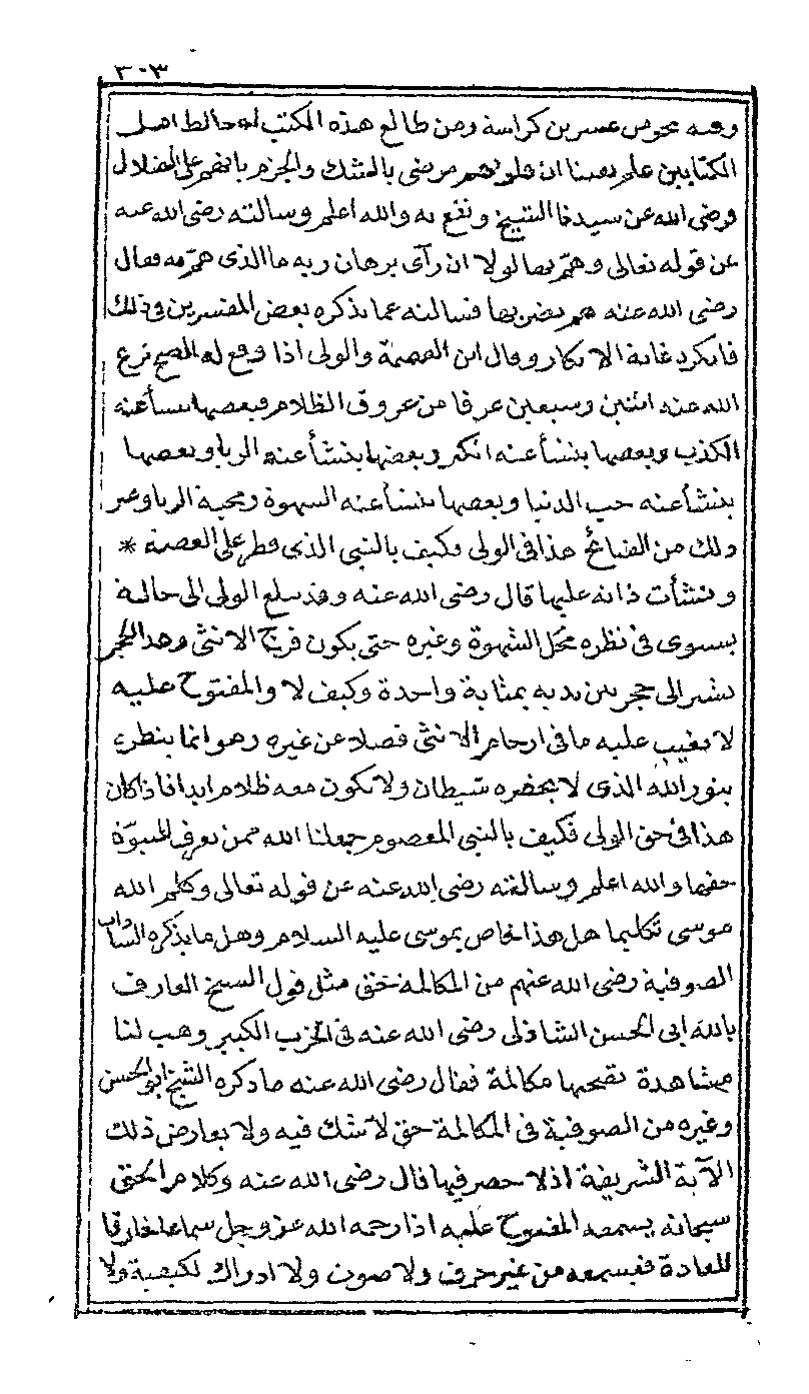 ٣٠٣
وفيه نحو من عشرين كراسة ومن طالع هذه الكتب له خالط اهل
الكتابين علم يقينا ان قلوبهم مرضى بالشك والجزم بانهم على الضلال
فرضى الله عن سيدنا الشيخ ونفع به والله اعلم وسالته رضى الله عنه
عن قوله تعالى وهمّ بها لولا ان رآى برهان ربه ما الذى همّ به فقال
رضى الله عنه هم بضربها فسالته عما يذكره بعض المفسرين فى ذلك
فانكره غاية الانكار وقال اين العصمة والولى اذا وقع له الفتح نزع
الله عنه اثنين وسبعين عرقا من عروق الظلام فبعضها ينشأ عنه
الكذب وبعضها ينشأ عنه الكبر وبعضها ينشأ عنه الريا وبعضها
ينشأ عنه حب الدنيا وبعضها ينشأ عنه الشهوة ومحبة الزنا وغير
ذلك من القبائح هذا فى الولى فكيف بالنبى الذى فطر على العصمة *
ونشأت ذاته عليها قال رضى الله عنه وقد يبلغ الولى الى حالة
يستوى فى نظره محل الشهوة وغيره حتى يكون فرج الانثى وهذا الحجر
يشير الى حجر بين يديه بمثابة واحدة وكيف لا والمفتوح عليه
لا يغيب عليه ما فى ارحام الانثى فضلا عن غيره وهو انما ينظر
بنور الله الذى لا يحضره شيطان ولا يكون معه ظلام ابدا فاذا كان
هذا فى حق الولى فكيف بالنبى المعصوم جعلنا الله ممن يعرف للنبوّة
حقها والله اعلم وسالته رضى الله عنه عن قوله تعالى وكلم الله
موسى تكليما هل هذا خاص بموسى عليه السلام وهل ما يذكره السادات
الصوفية رضى الله عنهم من المكالمة حق مثل قول الشيخ العارف
بالله ابى الحسن الشاذلى رضى الله عنه فى الحزب الكبير وهب لنا
مشاهدة تصحبها مكالمة فقال رضى الله عنه ما ذكره الشيخ ابو الحسن
وغيره من الصوفية فى المكالمة حق لا شك فيه ولا يعارض ذلك
الآية الشريفة اذ لا حصر فيها قال رضى الله عنه وكلام الحق
سبحانه يسمعه المفتوح عليه اذا رحمه الله عز وجل سماعا خارقا
للعادة فيسمعه من غير حرف ولا صوت ولا ادراك لكيفية ولا